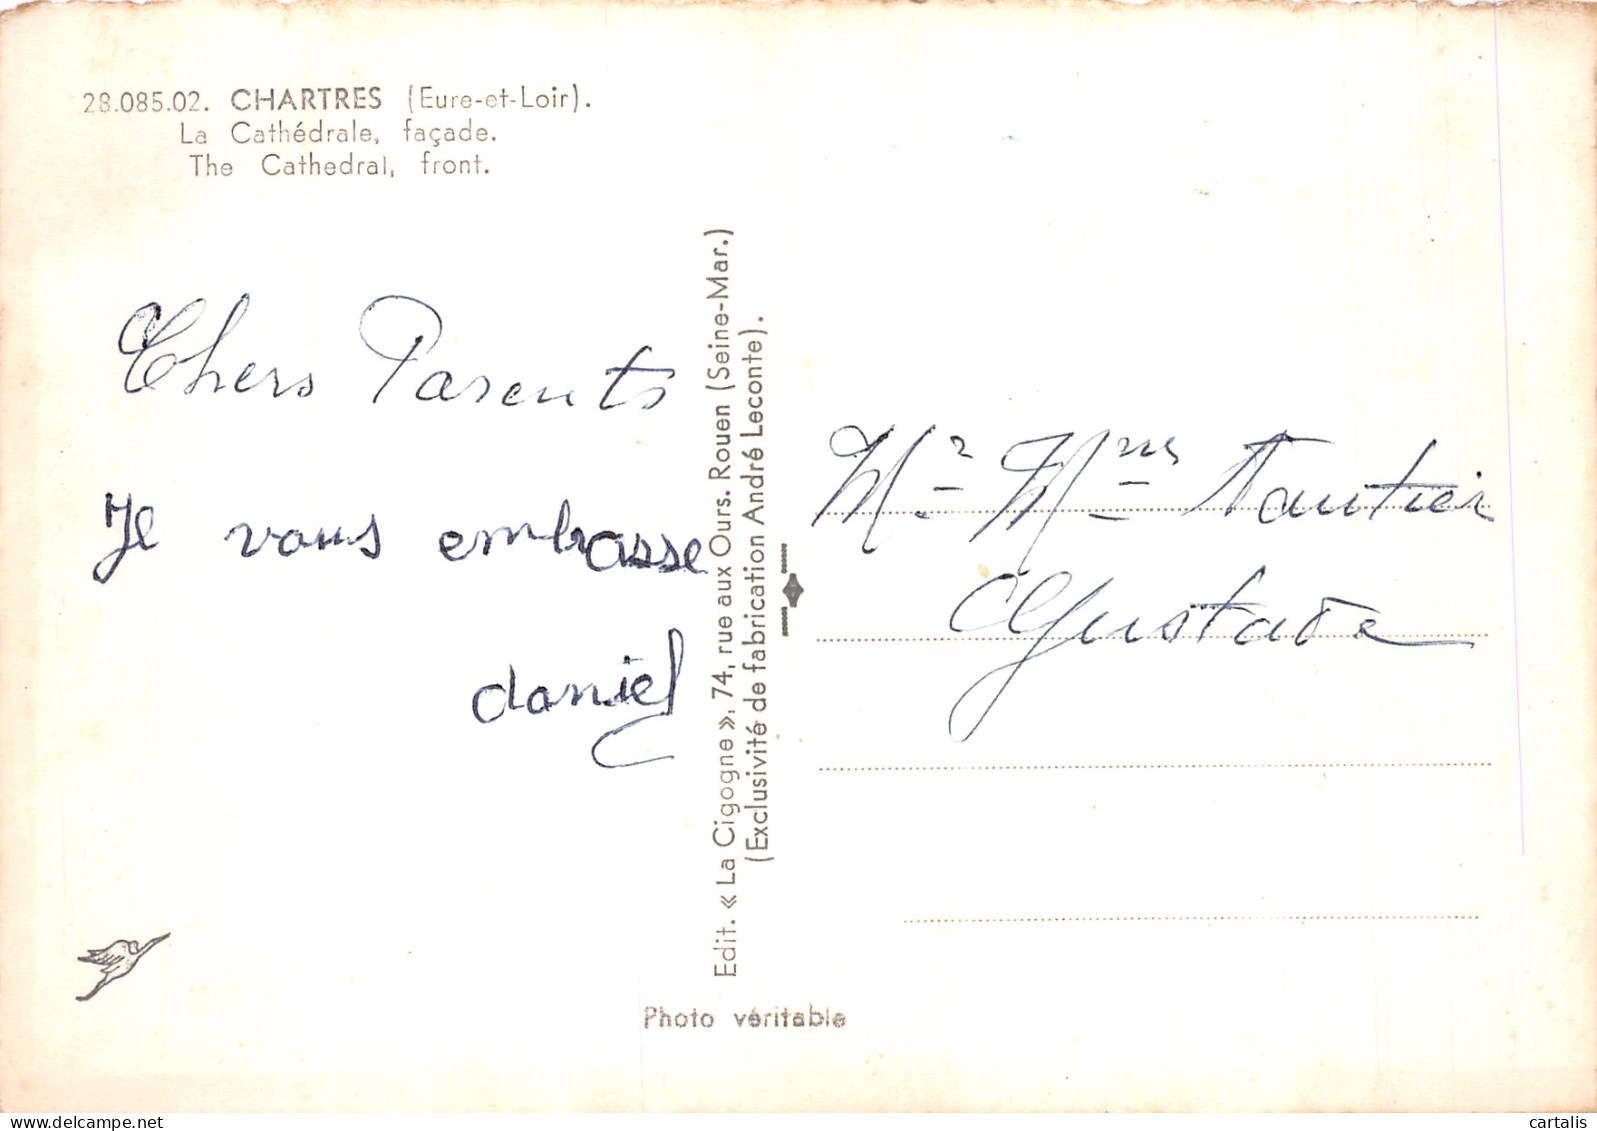 28.085.02. CHARTRES (Eure-et-Loir).
La Cathédrale, façade.
The Cathedral, front.
Chers Parents
Je vous embrasse
daniel
Edit. « La Cigogne », 74, rue aux Ours. Rouen (Seine-Mar.)
(Exclusivité de fabrication André Leconte).
Mr Mme Tautier
Gustave
Photo véritable
cartalis